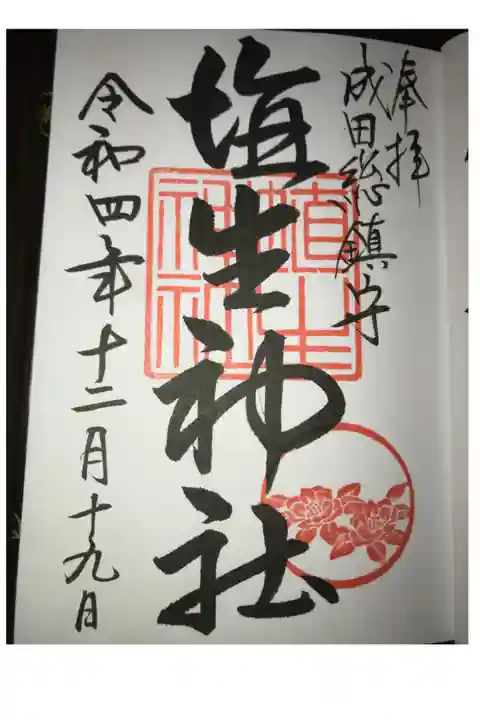 奉拝
成田総鎮守
埴生神社
埴生神社
令和四年十二月十九日